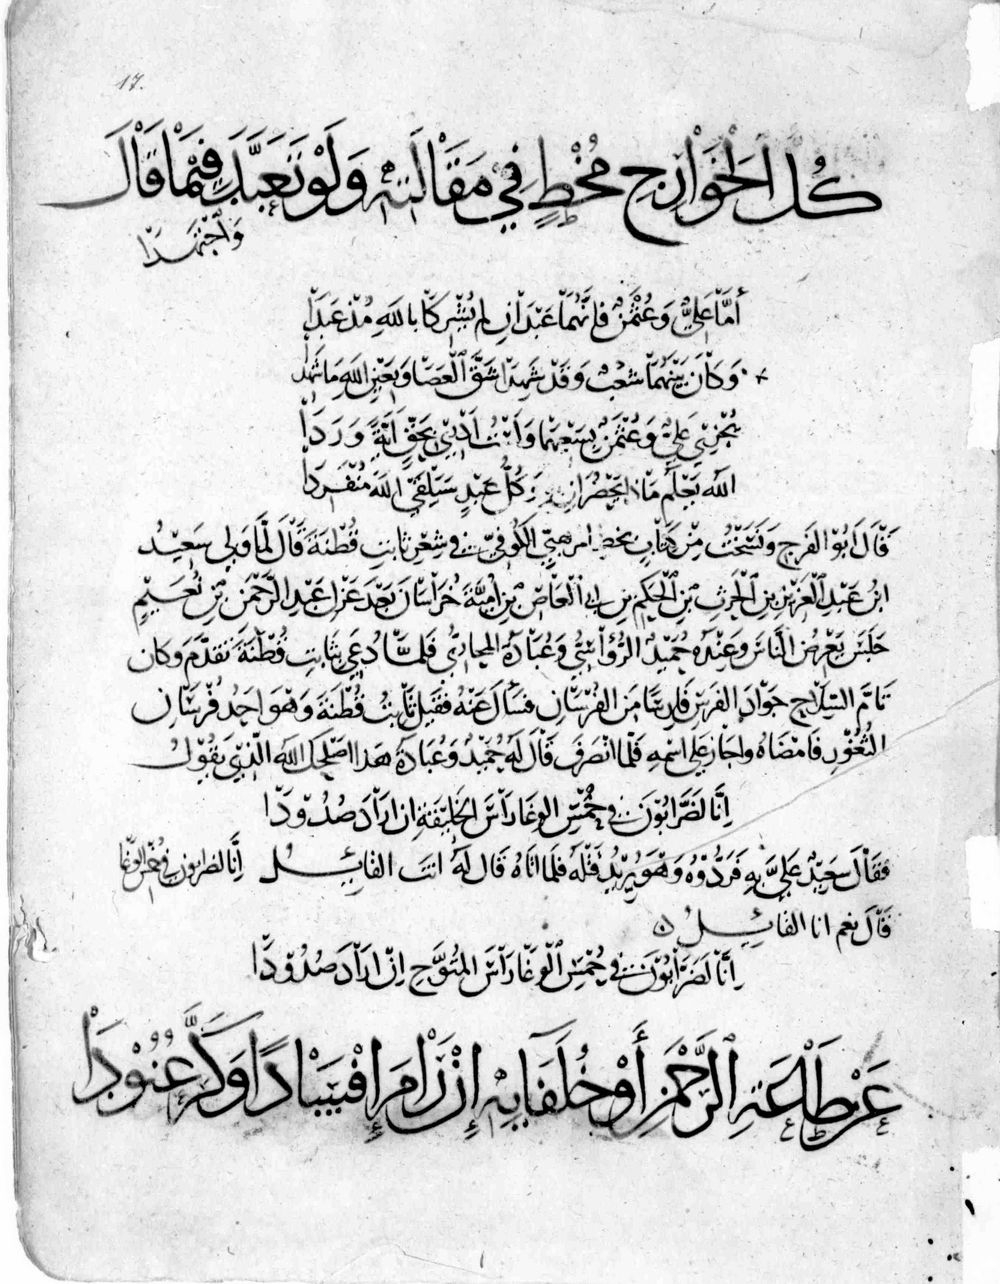 17.
كُلُّ الْخَوَارِجِ مُخْطٍ فِي مَقَالَتِهِ وَلَوْ تَعَبَّدَ فِيمَا قَالَ
وَاجْتَهَدَا
أَمَّا عَلِيٌّ وَعُثْمٰنٌ فَإِنَّهُمَا عَبْدَانِ لَمْ يُشْرِكَا بِاللهِ مُذْ عَبَدَا
وَكَانَ بَيْنَهُمَا شَعْبٌ وَقَدْ شَهِدَا شَقَّ الْعَصَا وَبِعَيْنِ اللهِ مَا شَهِدَا
يُجْزَى عَلِيٌّ وَعُثْمٰنٌ بِسَعْيِهِمَا وَلَسْتُ أَدْرِي بِحَقٍّ أَيَّةً وَرَدَا
اللهُ يَعْلَمُ مَاذَا يَحْضُرَانِ بِهِ وَكُلُّ عَبْدٍ سَيَلْقَى اللهَ مُنْفَرِدَا
قَالَ أَبُو الْفَرَجِ وَنَسَخْتُ مِنْ كِتَابٍ بِخَطِّ المرهبي الكُوفِيّ في شِعْرِ ثَابِتِ قُطْنَةَ قَالَ لَمَّا وَلِيَ سَعِيدُ
ابْنُ عَبْدِ الْعَزِيزِ بْنِ الْحٰرِثِ بْنِ الْحَكَمِ بْنِ أبي الْعَاصِ بْنِ أُمَيَّةَ خُرَاسَانَ بَعْدَ عَزْلِ عَبْدِ الرَّحْمٰنِ بْنِ نُعَيْمٍ
جَلَسَ يَعْرِضُ النَّاسَ وَعِنْدَهُ حُمَيْدٌ الرُّؤَاسِيُّ وَعُبَادَةُ المحاربي فَلَمَّا دُعِيَ بِثَابِتِ قُطْنَةَ تَقَدَّمَ وَكَانَ
تَامَّ السِّلَاحِ جَوَادَ الفَرَسِ فَارِسًا مِنَ الفُرْسَانِ فَسَأَلَ عَنْهُ فَقِيلَ ثَابِتُ قُطْنَةَ وَهُوَ أَحَدُ فُرْسَانِ
الثُّغُورِ فَأَمْضَاهُ وَأَجَازَ عَلَى اسْمِهِ فَلَمَّا انْصَرَفَ قَالَ لَهُ حُمَيْدٌ وَعُبَادَةُ هَذَا أَصْلَحَكَ اللهُ الَّذِي يَقُولُ
إِنَّا لَضَرَّابُونَ فِي حُمْسِ الوغَا رَأْسَ الخَلِيفَةِ إِنْ أَرَادَ صُدُودَا
فَقَالَ سَعِيدٌ عَلَيَّ بِهِ فَرَدُّوهُ وَهُوَ يُرِيدُ قَتْلَهُ فَلَمَّا أَتَاهُ قَالَ لَهُ أَنْتَ القَائِلُ إِنَّا لضرابون في حمس الوغا
قَالَ نعم أنا القائل
إِنَّا لَضَرَّابُونَ فِي حُمْسِ الْوَغَا رَأْسَ المُتَوَّجِ إِنْ أَرَادَ صُدُودَا
عَنْ طَاعَةِ الرَّحْمٰنِ أَوْ خُلَفَائِهِ إِنْ رَامَ إِفْسَادًا وَكَرَّ عُنُودَا